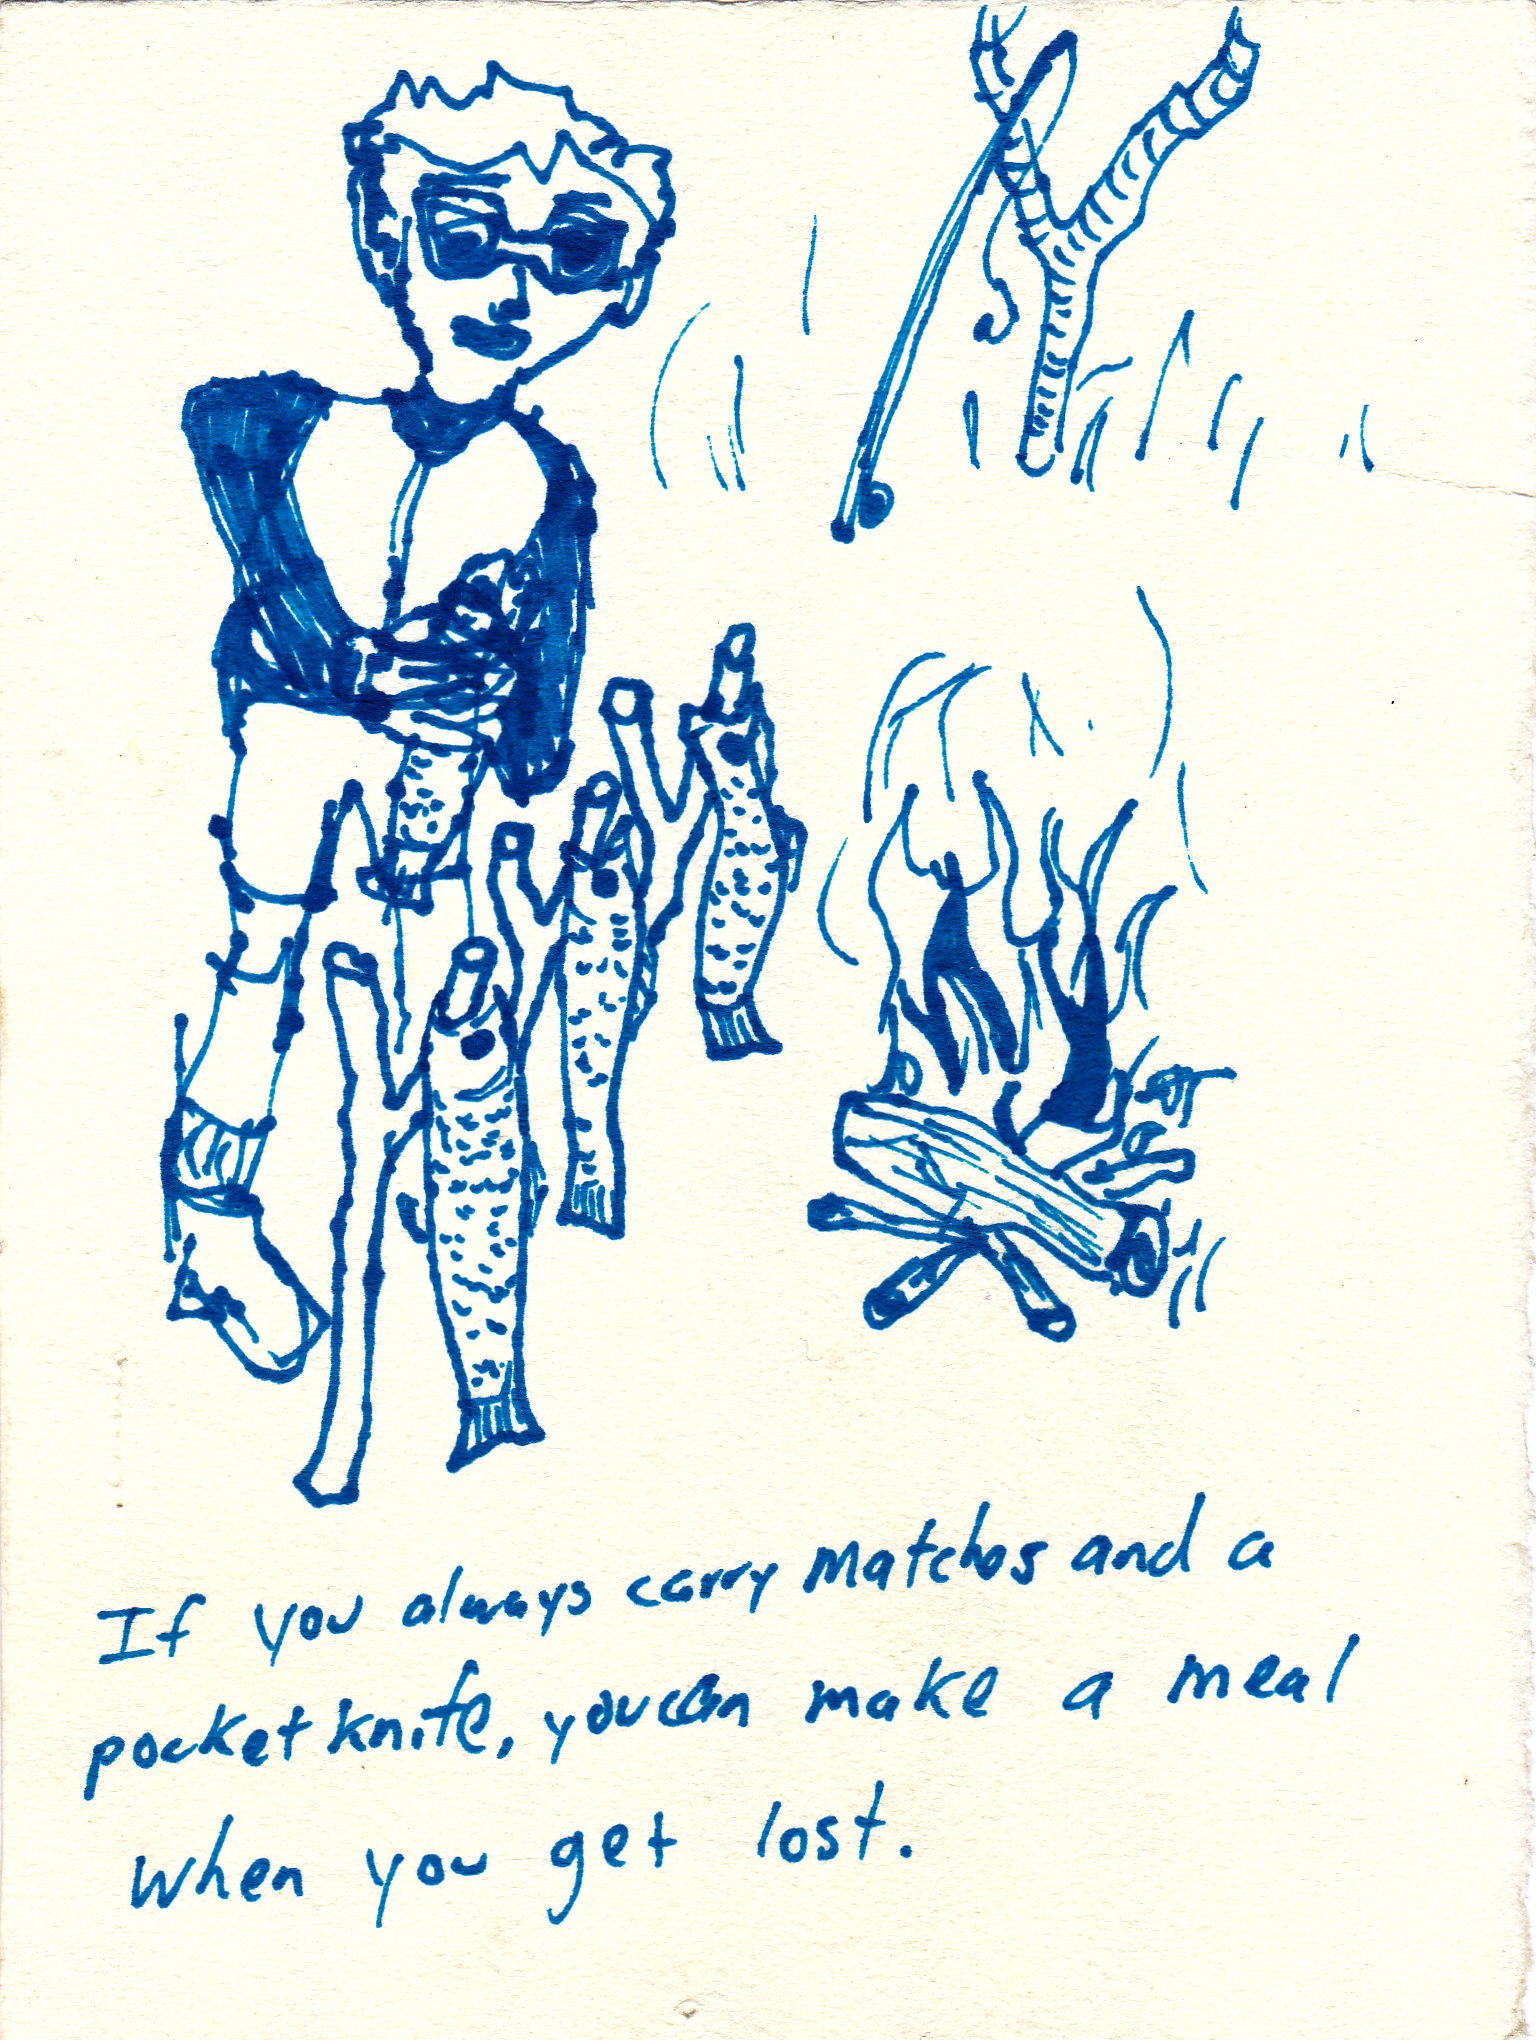 If you always carry matches and a
pocket knife, you can make a meal
when you get lost.